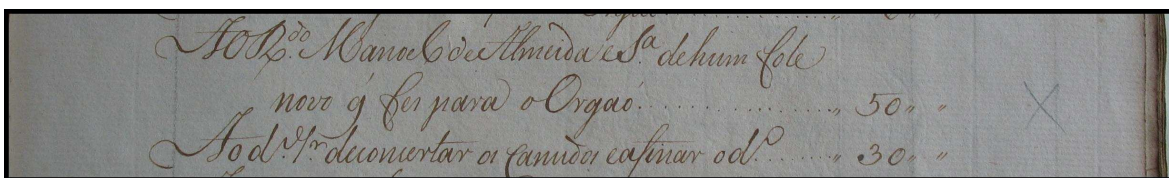 Ao R.do Manoel de Almeida e S.a de hum fole
novo q̃ fes para o Orgaõ .............. " 50 " "
Ao d.o p.r de consertar os Canudos e afinar o d.o ...... " 30 " "